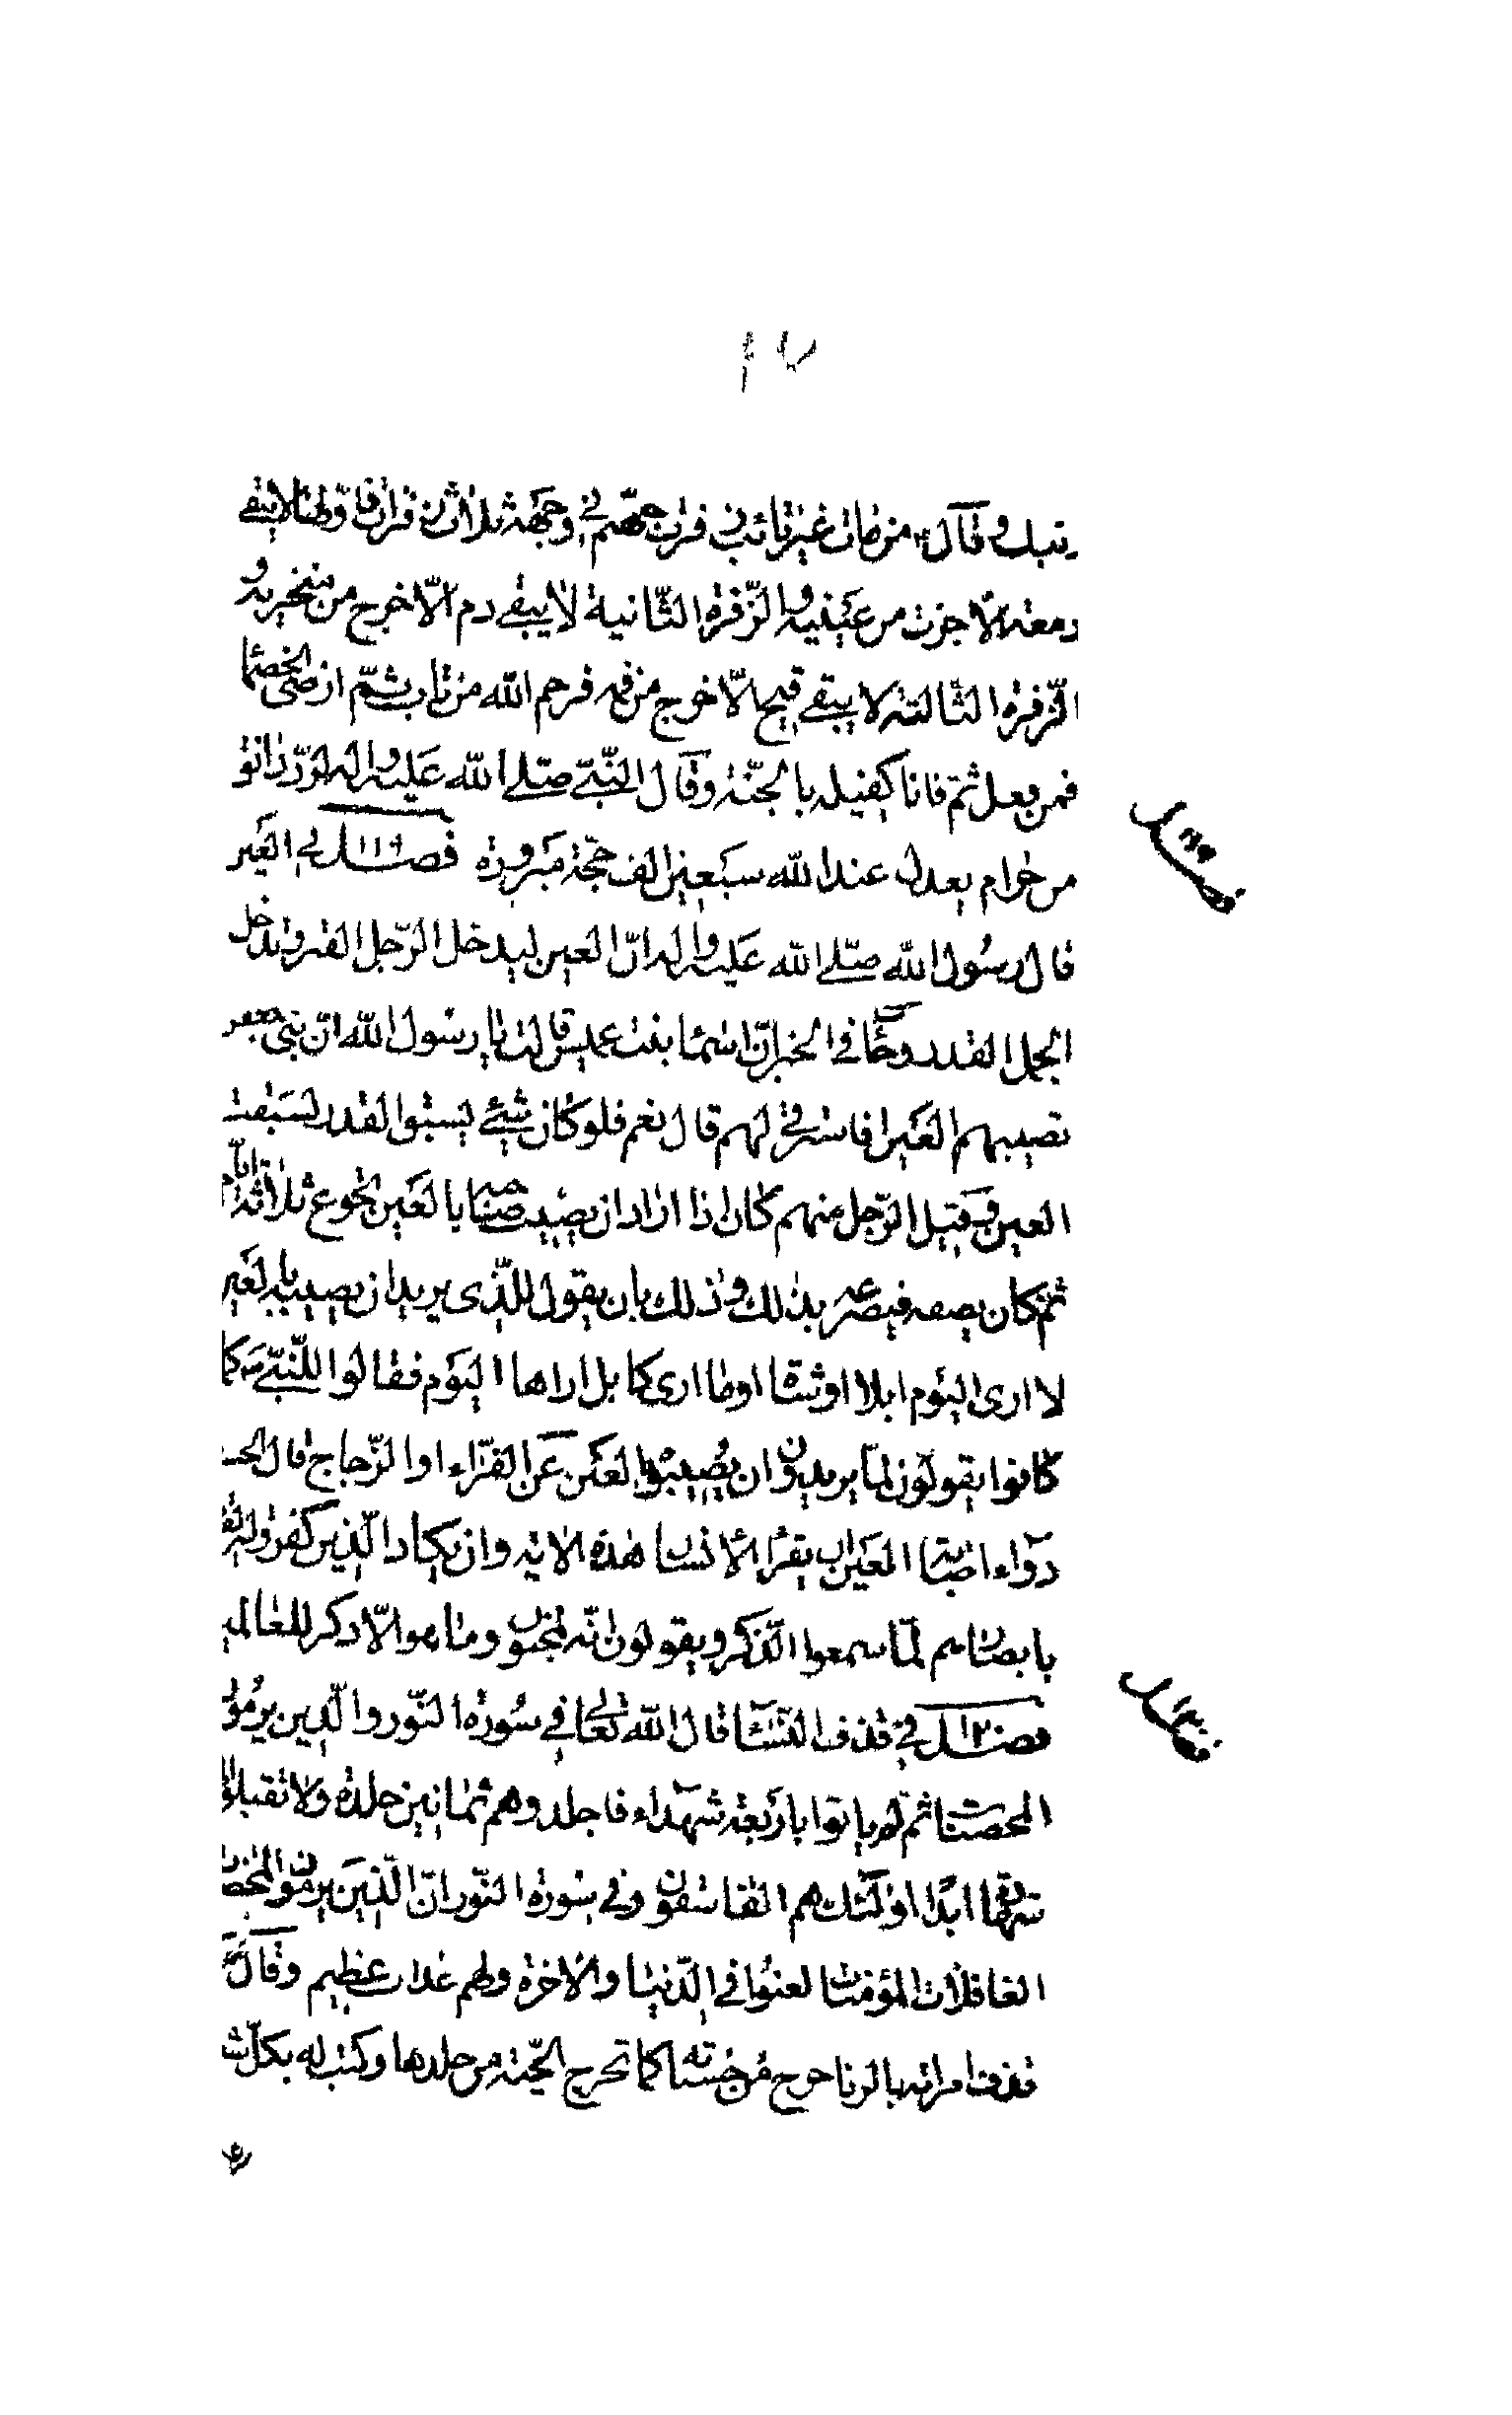 ربك وقال من مات غير تائب زفرت جهنم في وجهه ثلاث زفرات فاولها لا يبقى
دمعة الا جرت من عينيه والزفرة الثانية لا يبقى دم الا خرج من منخريه و
الزفرة الثالثة لا يبقى قيح الا خرج من فمه فرحم الله من تاب ثم ارضى الخصماء
فمن فعل ثم فانا كفيله بالجنة وقال النبي صلى الله عليه واله لردّ دانق
من حرام يعدل عند الله سبعين الف حجة مبرورة فصل ١١٩ في العين
قال رسول الله صلى الله عليه واله ان العين ليدخل الرجل القبر وتدخل
الجمل القدر وجاء في الخبر ان اسماء بنت عميس قالت يا رسول الله ان بني جعفر
تصيبهم العين افاسترقي لهم قال نعم فلو كان شيء يسبق القدر لسبقت
العين وقيل الرجل منهم كان اذا اراد ان يصيب صاحبه بالعين تجوع ثلاثة ايام
ثم كان يصفه فيصرعه بذلك وذلك بان يقول للذي يريد ان يصيبه بالعين
لا ارى اليوم ابلا او شاة او ما ارى كابل اراها اليوم فقالوا للنبي ص كما
كانوا يقولون لما يريدون ان يصيبوا بالعين عن الفراء والزجاج قال الحسن
دواء اصابة العين ان يقرأ الانسان هذه الاية وان يكاد الذين كفروا ليزلقونك
بابصارهم لما سمعوا الذكر ويقولون انه لمجنون وما هو الا ذكر للعالمين
فصل ١٢٠ في قذف النساء قال الله تعالى في سورة النور والذين يرمون
المحصنات ثم لم ياتوا باربعة شهداء فاجلدوهم ثمانين جلدة ولا تقبلوا
شهادة ابدا اولئك هم الفاسقون وفي سورة النور ان الذين يرمون المحصنات
الغافلات المؤمنات لعنوا في الدنيا والاخرة ولهم عذاب عظيم وقال
قذف امراته بالزنا خرج من حسناته كما تخرج الحية من جلدها وكتب له بكل
فصل
فصل